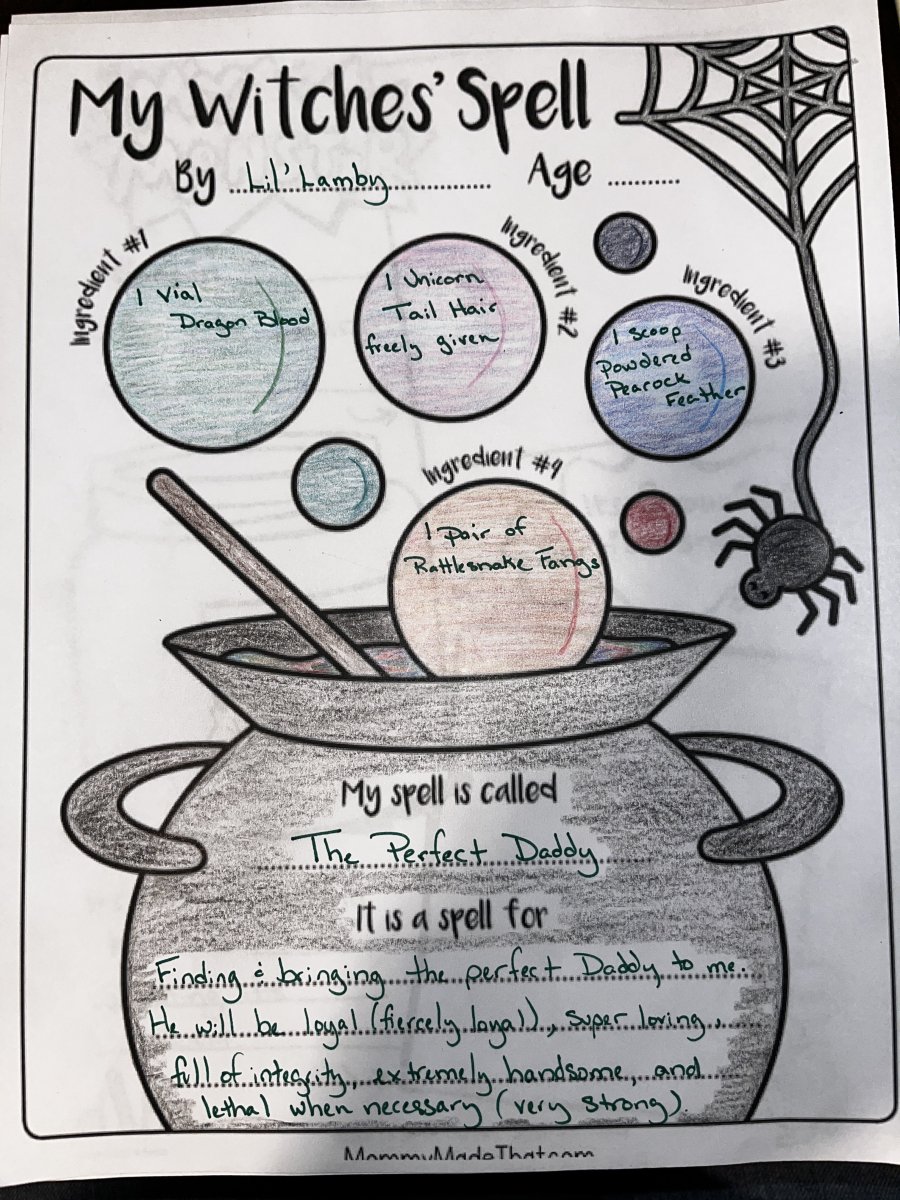 My Witches' Spell
By Lil' Lamby Age
Ingredient #1
1 Vial
Dragon Blood
Ingredient #2
1 Unicorn
Tail Hair
freely given
Ingredient #3
1 scoop
Powdered
Peacock
Feather
Ingredient #4
1 pair of
Rattlesnake Fangs
My spell is called
The Perfect Daddy
It is a spell for
Finding & bringing the perfect Daddy to me.
He will be loyal (fiercely loyal), super loving,
full of integrity, extremely handsome, and
lethal when necessary (very strong).
MommyMadeThat.com